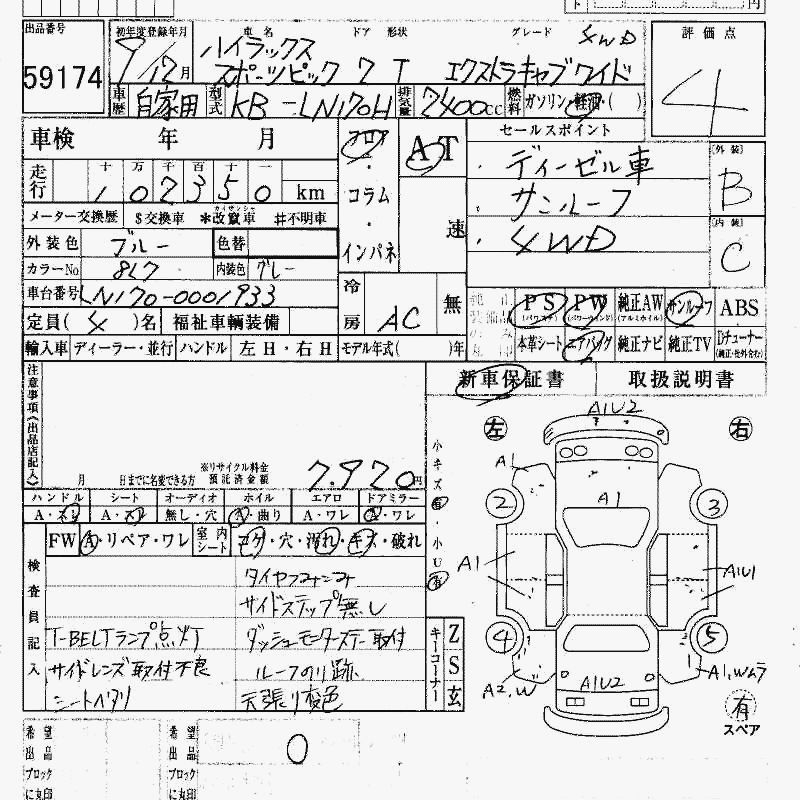 円
出品番号 初年度登録年月 車名 ドア 形状 グレード 評価点
59174 9/12月 ハイラックス 4WD 4
スポーツピック 2T エクストラキャブワイド
車歴 自家用 型式 KB-LN170H 排気量 2400cc 燃料 ガソリン・軽油・( )
車検 年 月 フロア AT セールスポイント
走行 十 万 千 百 十 一 ・ディーゼル車 [外装] B
102350 km コラム ・サンルーフ
メーター交換歴 $交換車 *改竄車 #不明車 カイザンシャ
外装色 ブルー 色替 インパネ 速 ・4WD [内装] C
カラーNo 8L7 内装色 グレー
車台番号 LN170-0001933 冷房 AC 無
純正装備品のみ丸印 PS (パワステ) PW (パワーウインド) 純正AW (アルミホイル) サンルーフ ABS
定員(4)名 福祉車輌装備
輸入車 ディーラー・並行 ハンドル 左H・右H モデル年式( )年 本革シート エアバッグ 純正ナビ 純正TV Dチューナー (純正・社外含む)
新車保証書 取扱説明書
注意事項《出品店記入》
月 日までに名変できる方 ※リサイクル料金預託済金額 7,920円
ハンドル シート オーディオ ホイル エアロ ドアミラー
A・スレ A・スレ 無し・穴 A・曲り A・ワレ A・ワレ
FW A・リペア・ワレ 室内シート コゲ・穴・汚れ・キズ・破れ
検査員記入
タイヤフミ二ミ
サイドステップ無し
T-BELTランプ点灯 ダッシュモニターステー取付
サイドレンズ取付不良 ルーフのり跡
シートヘタリ 天張り変色
小キズ有・小U有
キーコーナー Z S 玄
左 A1U2 右
A1
2 A1 3
A1 A1U1
4 5
A2,W A1U2 A1,Wムラ
有
スペア
希望出品ブロックに丸印 希望出品ブロックに丸印 0